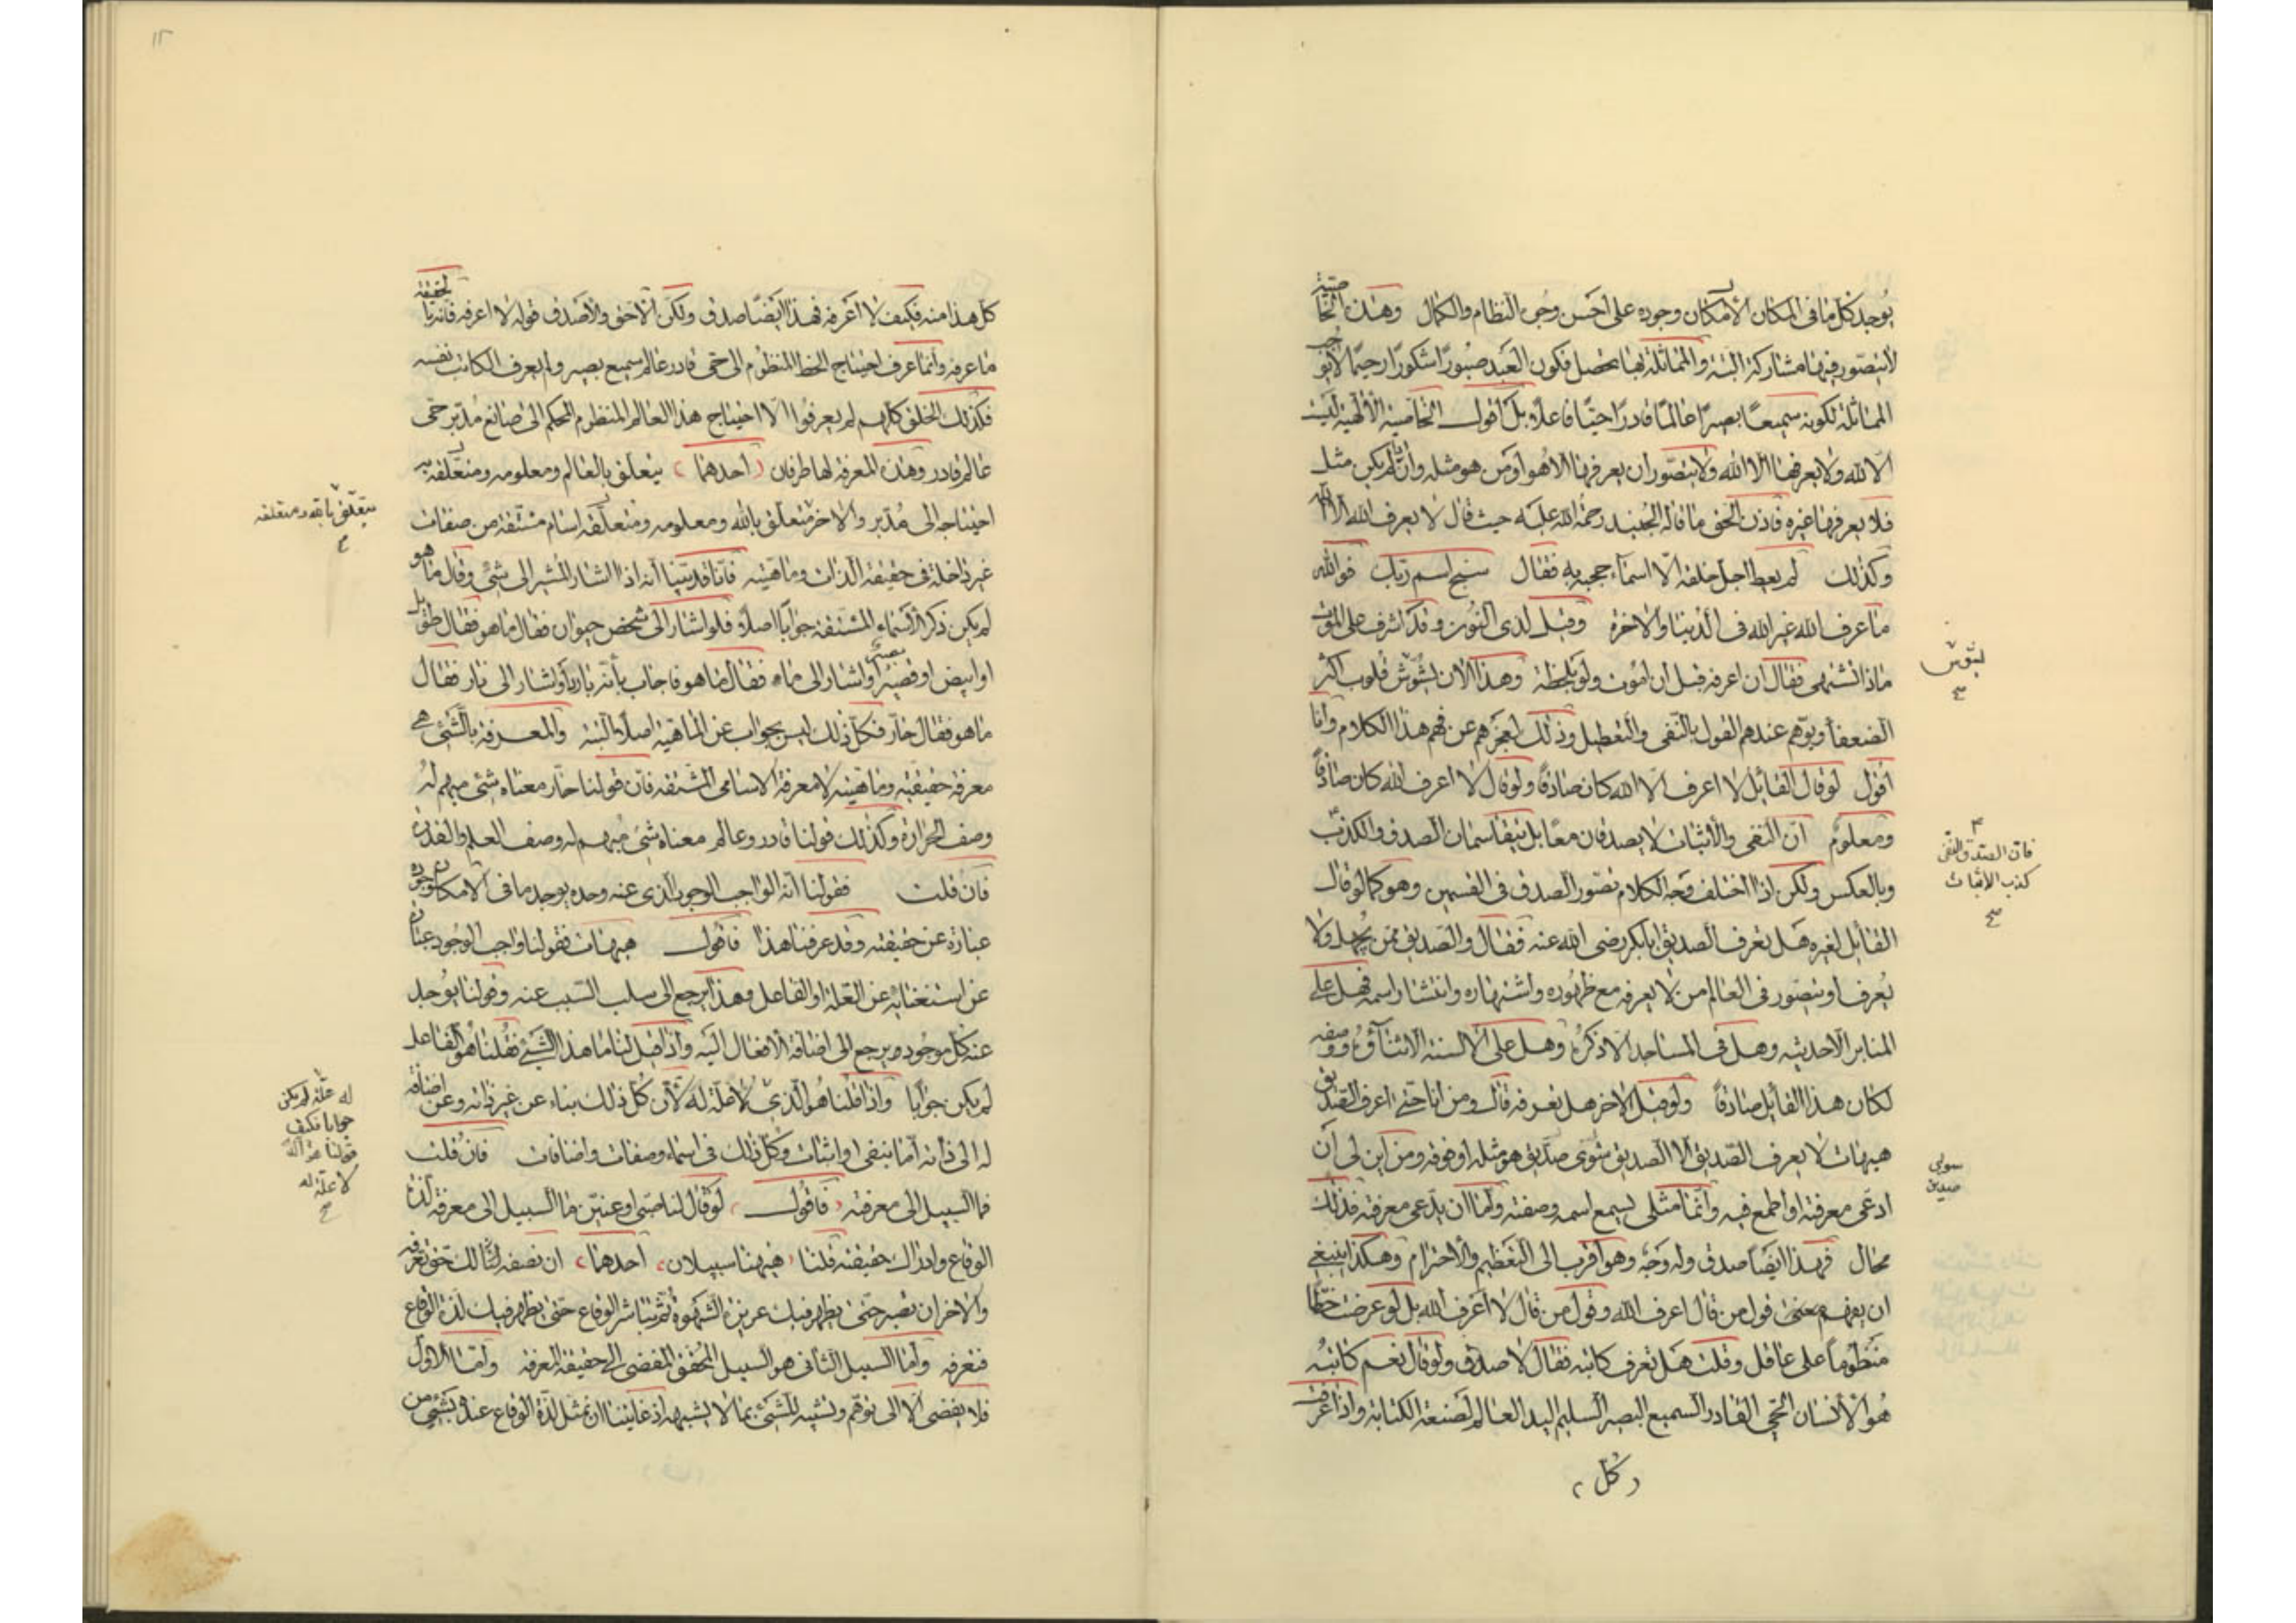 يوجد كل ما فى المكان الامكان وجوده على احسن وجوه النظام والكمال وهذه الخاصية
لا يتصور فيها مشاركة البتة والمماثلة بها تحصل فكون العبد صبورا شكورا رحيما لا يوجب
المماثلة لكونه سميعا بصيرا عالما قادرا حيا فاعلا بل اقول الخاصية الالهية ليست
الا لله ولا يعرفها الا الله ولا يتصور ان يعرفها الا هو او من هو مثله وان لم يكن مثل
فلا يعرفها غيره فاذن الحق ما قاله الجنيد رحمة الله عليه حيث قال لا يعرف الله الا الله
وكذلك لم يعط اجل خلقه الا اسماء حجبه به فقال سبح اسم ربك فو الله
ما عرف الله غير الله فى الدنيا والاخرة وقيل لذى النون وقد اشرف على الموت
ماذا تشتهى فقال ان اعرفه قبل ان اموت ولو بلحظة وهذا الان يشوش قلوب اكثر
الضعفا ويوهم عندهم القول بالنفى والتعطيل وذلك لعجزهم عن فهم هذا الكلام وانا
اقول لو قال القائل لا اعرف الا الله كان صادقا ولو قال لا اعرف الله كان صادقا
ومعلوم ان النفى والاثبات لا يصدقان معا بل يتقاسمان الصدق والكذب
وبالعكس ولكن اذا اختلف وجه الكلام تصور الصدق فى القسمين وهو كما لو قال
القايل لغيره هل تعرف الصديق ابا بكر رضى الله عنه فقال والصديق ممن يجهل ولا
يعرف او يتصور فى العالم من لا يعرفه مع ظهوره واشتهاره وانتشار اسمه فهل على
المنابر الا حديثه وهل فى المساجد الا ذكره وهل على الالسنة الا ثناؤه ووصفه
لكان هذا القايل صادقا ولو قيل لاخر هل تعرفه قال ومن انا حتى اعرف الصديق
هيهات لا يعرف الصديق الا الصديق سوى صديق هو مثله او فوقه ومن اين لى ان
ادعى معرفته او اطمع فيه وانما مثلى يسمع اسمه وصفته واما ان يدعى معرفته فذلك
محال فهذا ايضا صدق وله وجه وهو اقرب الى التعظيم والاحترام وهكذا ينبغى
ان يفهم معنى قول من قال اعرف الله وقول من قال لا اعرف الله بل لو عرضت خطا
منظوما على عاقل وقلت هل تعرف كاتبه فقال لا صدق ولو قال نعم كاتبه
هو الانسان الحى القادر السميع البصير السليم اليد العالم لصنعة الكتابة واذا عرفت
كل
يشوش
صح
فان الصدق والنفى
كذب الاثبات
صح
سوى
صديق
١٢
كل هذا منه فكيف لا اعرفه فهذا ايضا صدق ولكن الاحق والاصدق قوله لا اعرفه فانه بالحقيقة
ما عرفه وانما عرف احتياج الخط المنظوم الى حى قادر عالم سميع بصير ولم يعرف الكاتب نفسه
فكذلك الخلق كلهم لم يعرفوا الا احتياج هذا العالم المنظوم المحكم الى صانع مدبر حى
عالم قادر وهذه المعرفة لها طرفان احدهما يتعلق بالعالم ومعلومه ومتعلقه به
احتياجه الى مدبر والاخر متعلق بالله ومعلومه ومتعلقه اسام مشتقة من صفات
غير داخلة فى حقيقة الذات وماهيته فانا قد بينا انه اذا اشار المشير الى شىء وقال ما هو
لم يكن ذكر الاسماء المشتقة جوابا اصلا فلو اشار الى شخص حيوان فقال ما هو فقال طويل
او ابيض او قصير او اشار الى ماء فقال ما هو فاجاب بانه بارد او اشار الى نار فقال
ما هو فقال حار فكل ذلك ليس بجواب عن الماهية اصلا البتة والمعرفة بالشىء هى
معرفة حقيقته وماهيته لا معرفة الاسامى المشتقة فان قولنا حار معناه شىء مبهم له
وصف الحرارة وكذلك قولنا قادر وعالم معناه شىء مبهم له وصف العلم والقدرة
فان قلت فقولنا انه الواجب الوجود الذى عنه وحده يوجد ما فى الامكان وجوده
عبارة عن حقيقته وقد عرفنا هذا فاقول هيهات فقولنا واجب الوجود عبارة
عن استغنائه عن العلة او الفاعل وهذا يرجع الى سلب السبب عنه وقولنا يوجد
عنه كل موجود يرجع الى اضافة الافعال اليه واذا قيل لنا ما هذا الشىء فقلنا هو الفاعل
لم يكن جوابا واذا قلنا هو الذى لا علة له لان كل ذلك بناء عن غير ذاته وعن اضافة
له الى ذاته اما بنفى او اثبات وكل ذلك فى اسماء وصفات واضافات فان قلت
فما السبيل الى معرفته فاقول لو قال لنا صبى او عنين ما السبيل الى معرفة لذة
الوقاع وادراك حقيقته قلنا هيهنا سبيلان احدهما ان نصفه لك حتى تعرفه
والاخر ان تصبر حتى يظهر فيك غريزة الشهوة ثم تباشر الوقاع حتى يظهر فيك لذة الوقاع
فتعرفه واما السبيل الثانى هو السبيل المحقق المفضى الى حقيقة المعرفة واما الاول
فلا يفضى الا الى توهم وتشبيه للشىء بما لا يشبهه اذ غايتنا ان نمثل لذة الوقاع عنده بشىء من
يتعلق بالله ومتعلقه
له علة لم يكن
جوابا فكيف
قولنا هو الذى
لا علة له
صح